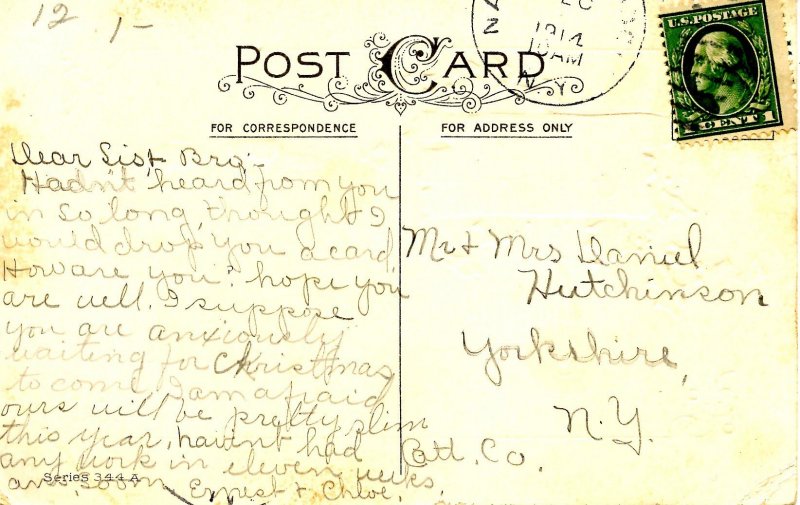 12 1-
1914
AM
N.Y.
U.S. POSTAGE
1 CENT 1
POST CARD
FOR CORRESPONDENCE
FOR ADDRESS ONLY
Dear Sis + Bro;-
Hadn't heard from you
in so long, thought I
would drop you a card
How are you? hope you
are well. I suppose
you are anxiously
waiting for Christmas
to come. I am afraid
ours will be pretty slim
this year, havn't had
any work in eleven weeks
ans. soon Ernest & Chloe.
Series 344 A
Mr + Mrs Daniel
Hutchinson
Yorkshire,
N.Y.
Catt. Co.